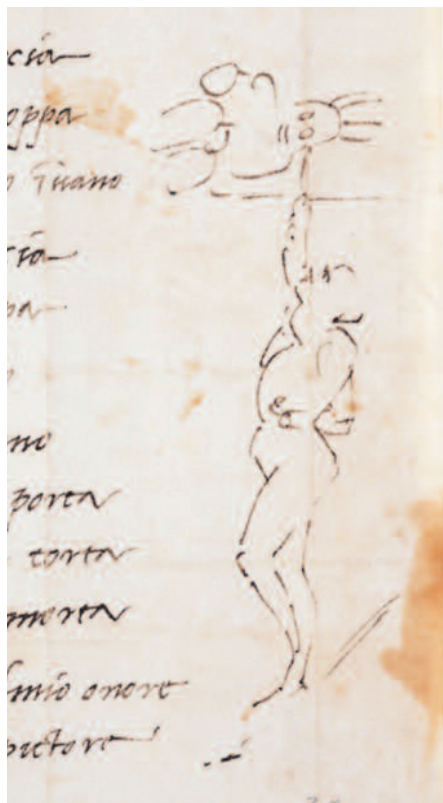 cia
oppa
ria
pa
no
porta
torta
morta
l mio onore
pictore